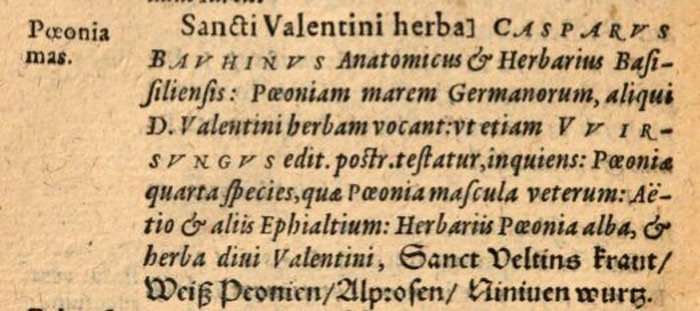 Pœonia
mas.
Sancti Valentini herba] CASPARVS
BAVHINVS Anatomicus & Herbarius Basi-
siliensis: Pœoniam marem Germanorum, aliqui
D. Valentini herbam vocant: vt etiam VVIR-
SVNGVS edit. postr. testatur, inquiens: Pœonia
quarta species, quæ Pœonia mascula veterum: Aë-
tio & aliis Ephialtium: Herbariis Pœonia alba, &
herba diui Valentini, Sanct Veltins kraut/
Weiß Peonien/ Alprosen/ Niniuen wurtz.